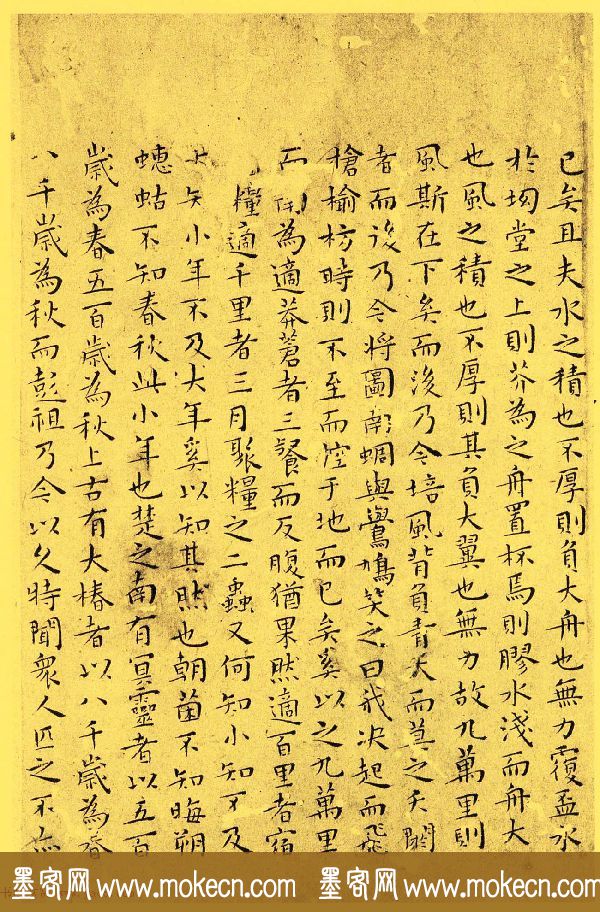 已矣且夫水之積也不厚則負大舟也無力覆盃水
於坳堂之上則芥為之舟置杯焉則膠水淺而舟大
也風之積也不厚則其負大翼也無力故九萬里則
風斯在下矣而後乃今培風背負青天而莫之夭閼
者而後乃今將圖南蜩與鷽鳩笑之曰我决起而飛
槍榆枋時則不至而控于地而已矣奚以之九萬里
而南為適莽蒼者三飡而反腹猶果然適百里者宿
糧適千里者三月聚糧之二蟲又何知小知不及
大矢小年不及大年奚以知其然也朝菌不知晦朔
蟪蛄不知春秋此小年也楚之南有冥靈者以五百
歲為春五百歲為秋上古有大椿者以八千歲為春
八千歲為秋而彭祖乃今以久特聞衆人匹之不
墨客网 www.mokecn.com 墨客网 www.mokecn.com